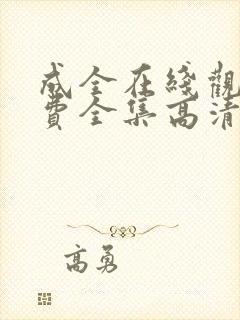 成全在綫觀
費全集高清
高勇